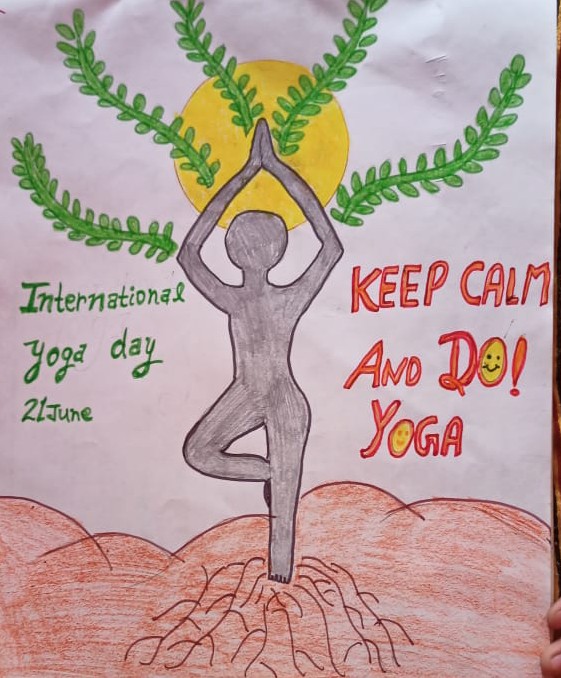 International
Yoga day
21 June
KEEP CALM
AND DO!
YOGA